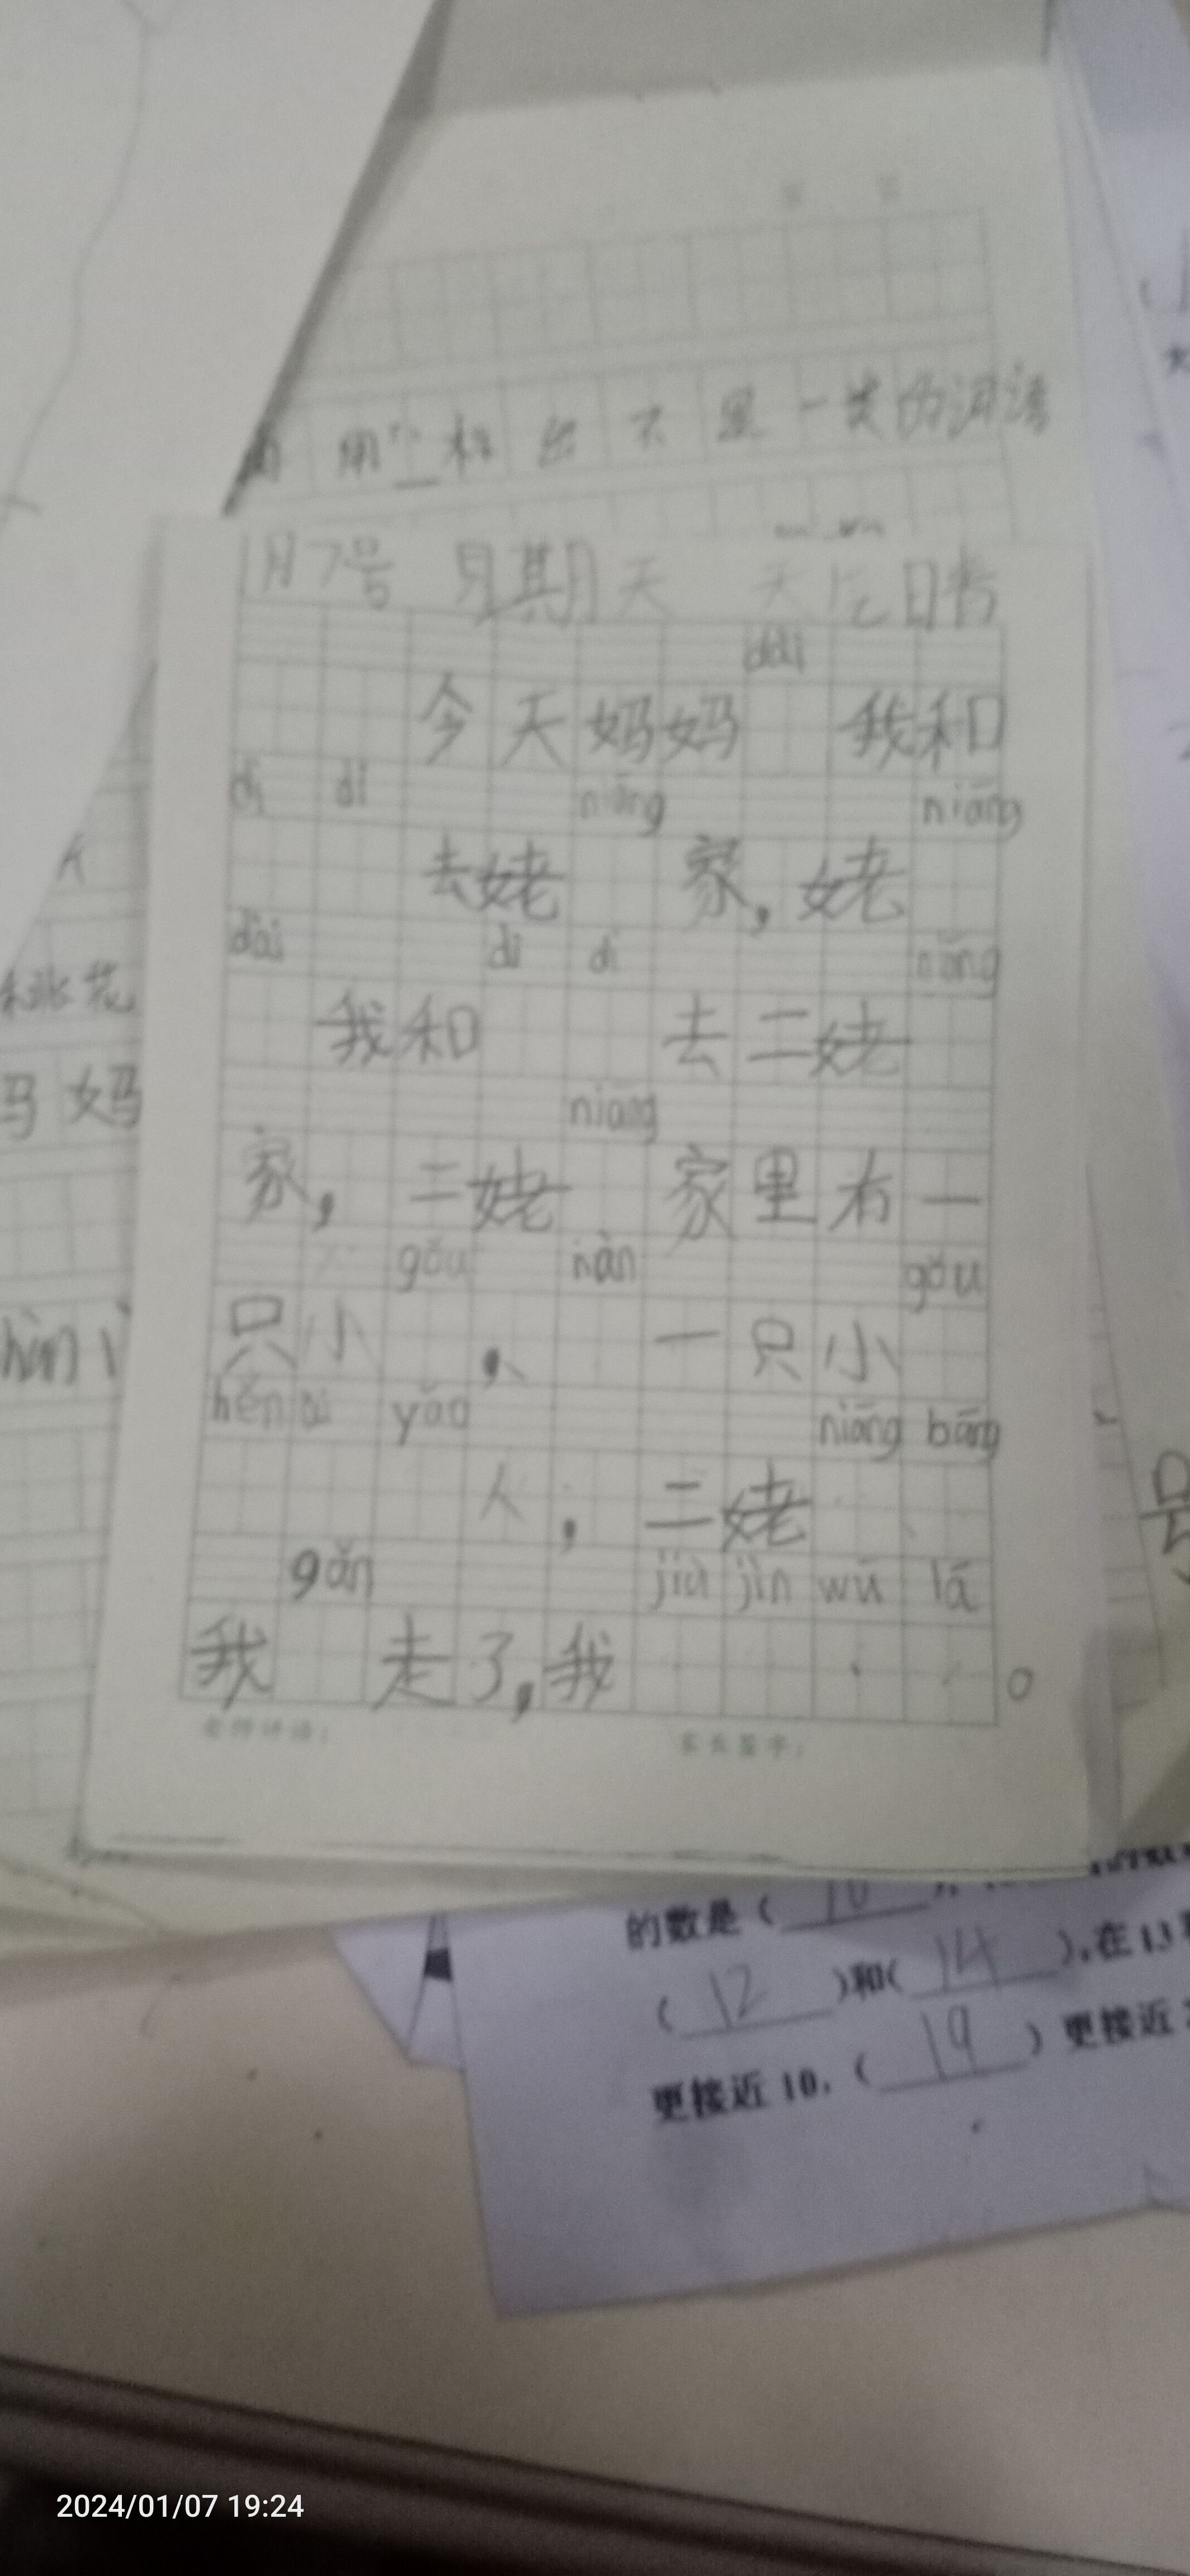 用 标 出 不 是 一 类 的 词 语
月7号 星期天 天气 日
dài
今天妈妈 我和
dì di niáng niáng
去姥 家，姥
dài dì di niáng
我和 去二姥
niáng
家，二姥 家里有一
gǒu nàn gǒu
只小 ， 一只小
hěn ài yǎo niáng bāng
人，二姥
gǎn jiā jìn wū lā
我 走了，我 。
老师评语：
家长签字：
桃花
妈 妈
号
的数是（ 10 ），
（ 12 ）和（ 14 ），在13
更接近10，（ 19 ）更接近
2024/01/07 19:24